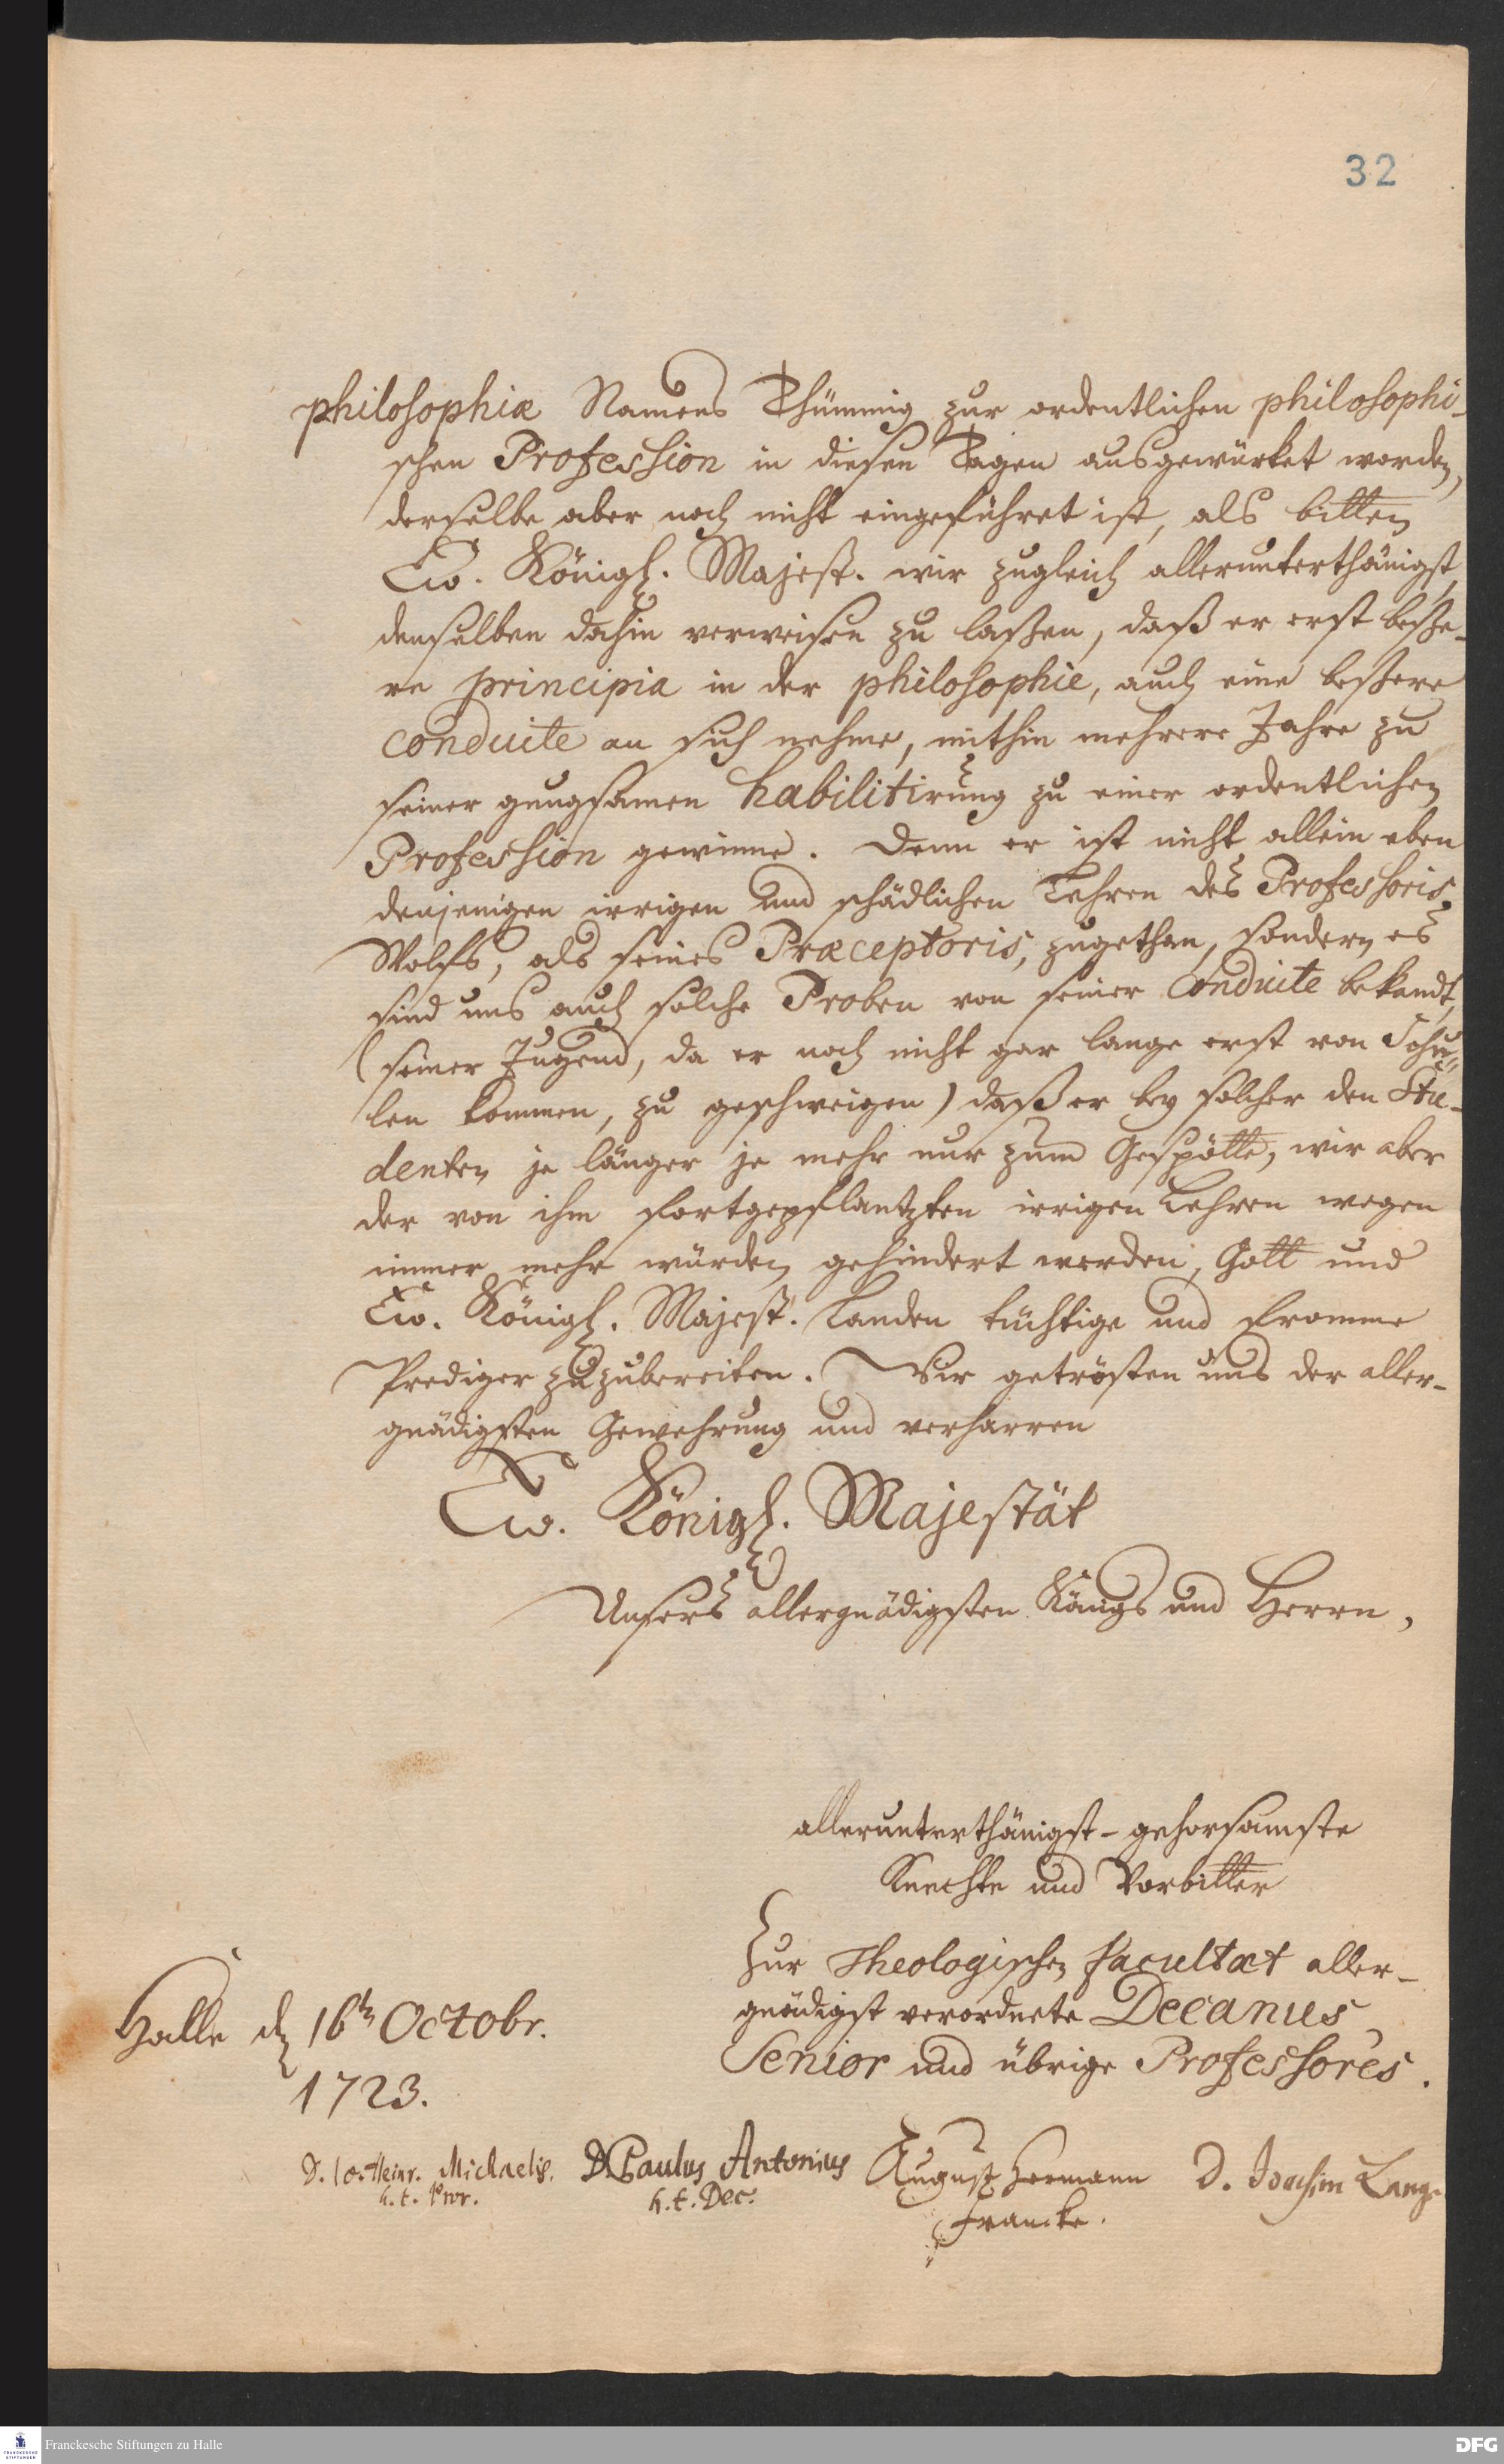 32
philosophiæ Namens Thümmig zur ordentlichen philosophi-
schen Profession in diesen Tagen ausgewürket worden,
derselbe aber noch nicht eingeführet ist, als bitten
Ew. Königl. Majest. wir zugleich allerunterthänigst,
denselben dahin verweisen zu laßen, daß er erst beße-
re principia in der philosophie, auch eine beßere
conduite an sich nehme, mithin mehrere Jahre zu
seiner gnugsamen habilitirung zu einer ordentlichen
Profession gewinne. Denn er ist nicht allein eben
denjenigen irrigen und schädlichen Lehren des Professoris
Wolfs, als seines Præceptoris, zugethan, sondern es
sind uns auch solche Proben von seiner Conduite bekandt,
(seiner Jugend, da er noch nicht gar lange erst von Schu-
len kommen, zu geschweigen) daß er bey solcher den Stu-
denten je länger je mehr nur zum Gespötte, wir aber
der von ihm fortgepflantzten irrigen Lehren wegen
immer mehr würden gehindert werden, Gott und
Ew. Königl. Majest. Landen tüchtige und fromme
Prediger zuzubereiten. Wir getrösten uns der aller-
gnädigsten Gewehrung und verharren
Ew. Königl. Majestät
Unsers allergnädigsten Königs und Herrn,
allerunterthänigst-gehorsamste
Knechte und Vorbitter
Zur Theologischen Facultæt aller-
gnädigst verordnete Decanus,
Senior und übrige Professores.
Halle dn 16tn Octobr.
1723.
D. Jo. Heinr. Michaelis. D. Paulus Antonius August Hermann D. Joachim Lange
h. t. Pror. h. t. Dec. Francke.
Franckesche Stiftungen zu Halle
DFG